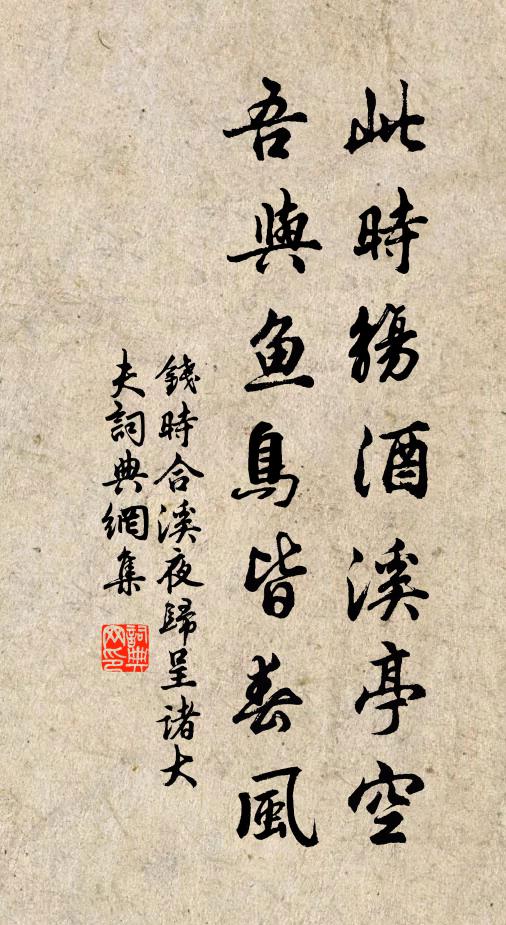 此時觴酒溪亭空
吾與魚鳥皆春風
錢時合溪夜歸呈诸大
夫詞典網集
詞典
网印